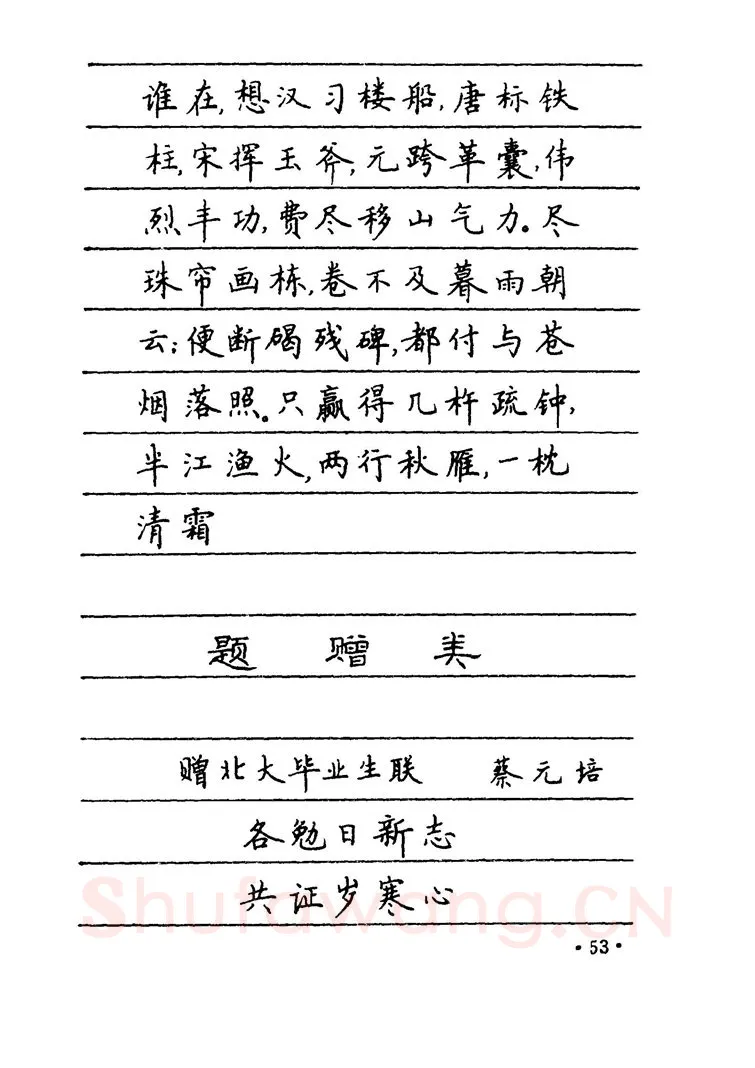 谁在,想汉习楼船,唐标铁
柱,宋挥玉斧,元跨革囊,伟
烈丰功,费尽移山气力。尽
珠帘画栋,卷不及暮雨朝
云;便断碣残碑,都付与苍
烟落照。只赢得几杵疏钟,
半江渔火,两行秋雁,一枕
清霜
题 赠 类
赠北大毕业生联 蔡元培
各勉日新志
共证岁寒心
Shufawang.CN
·53·